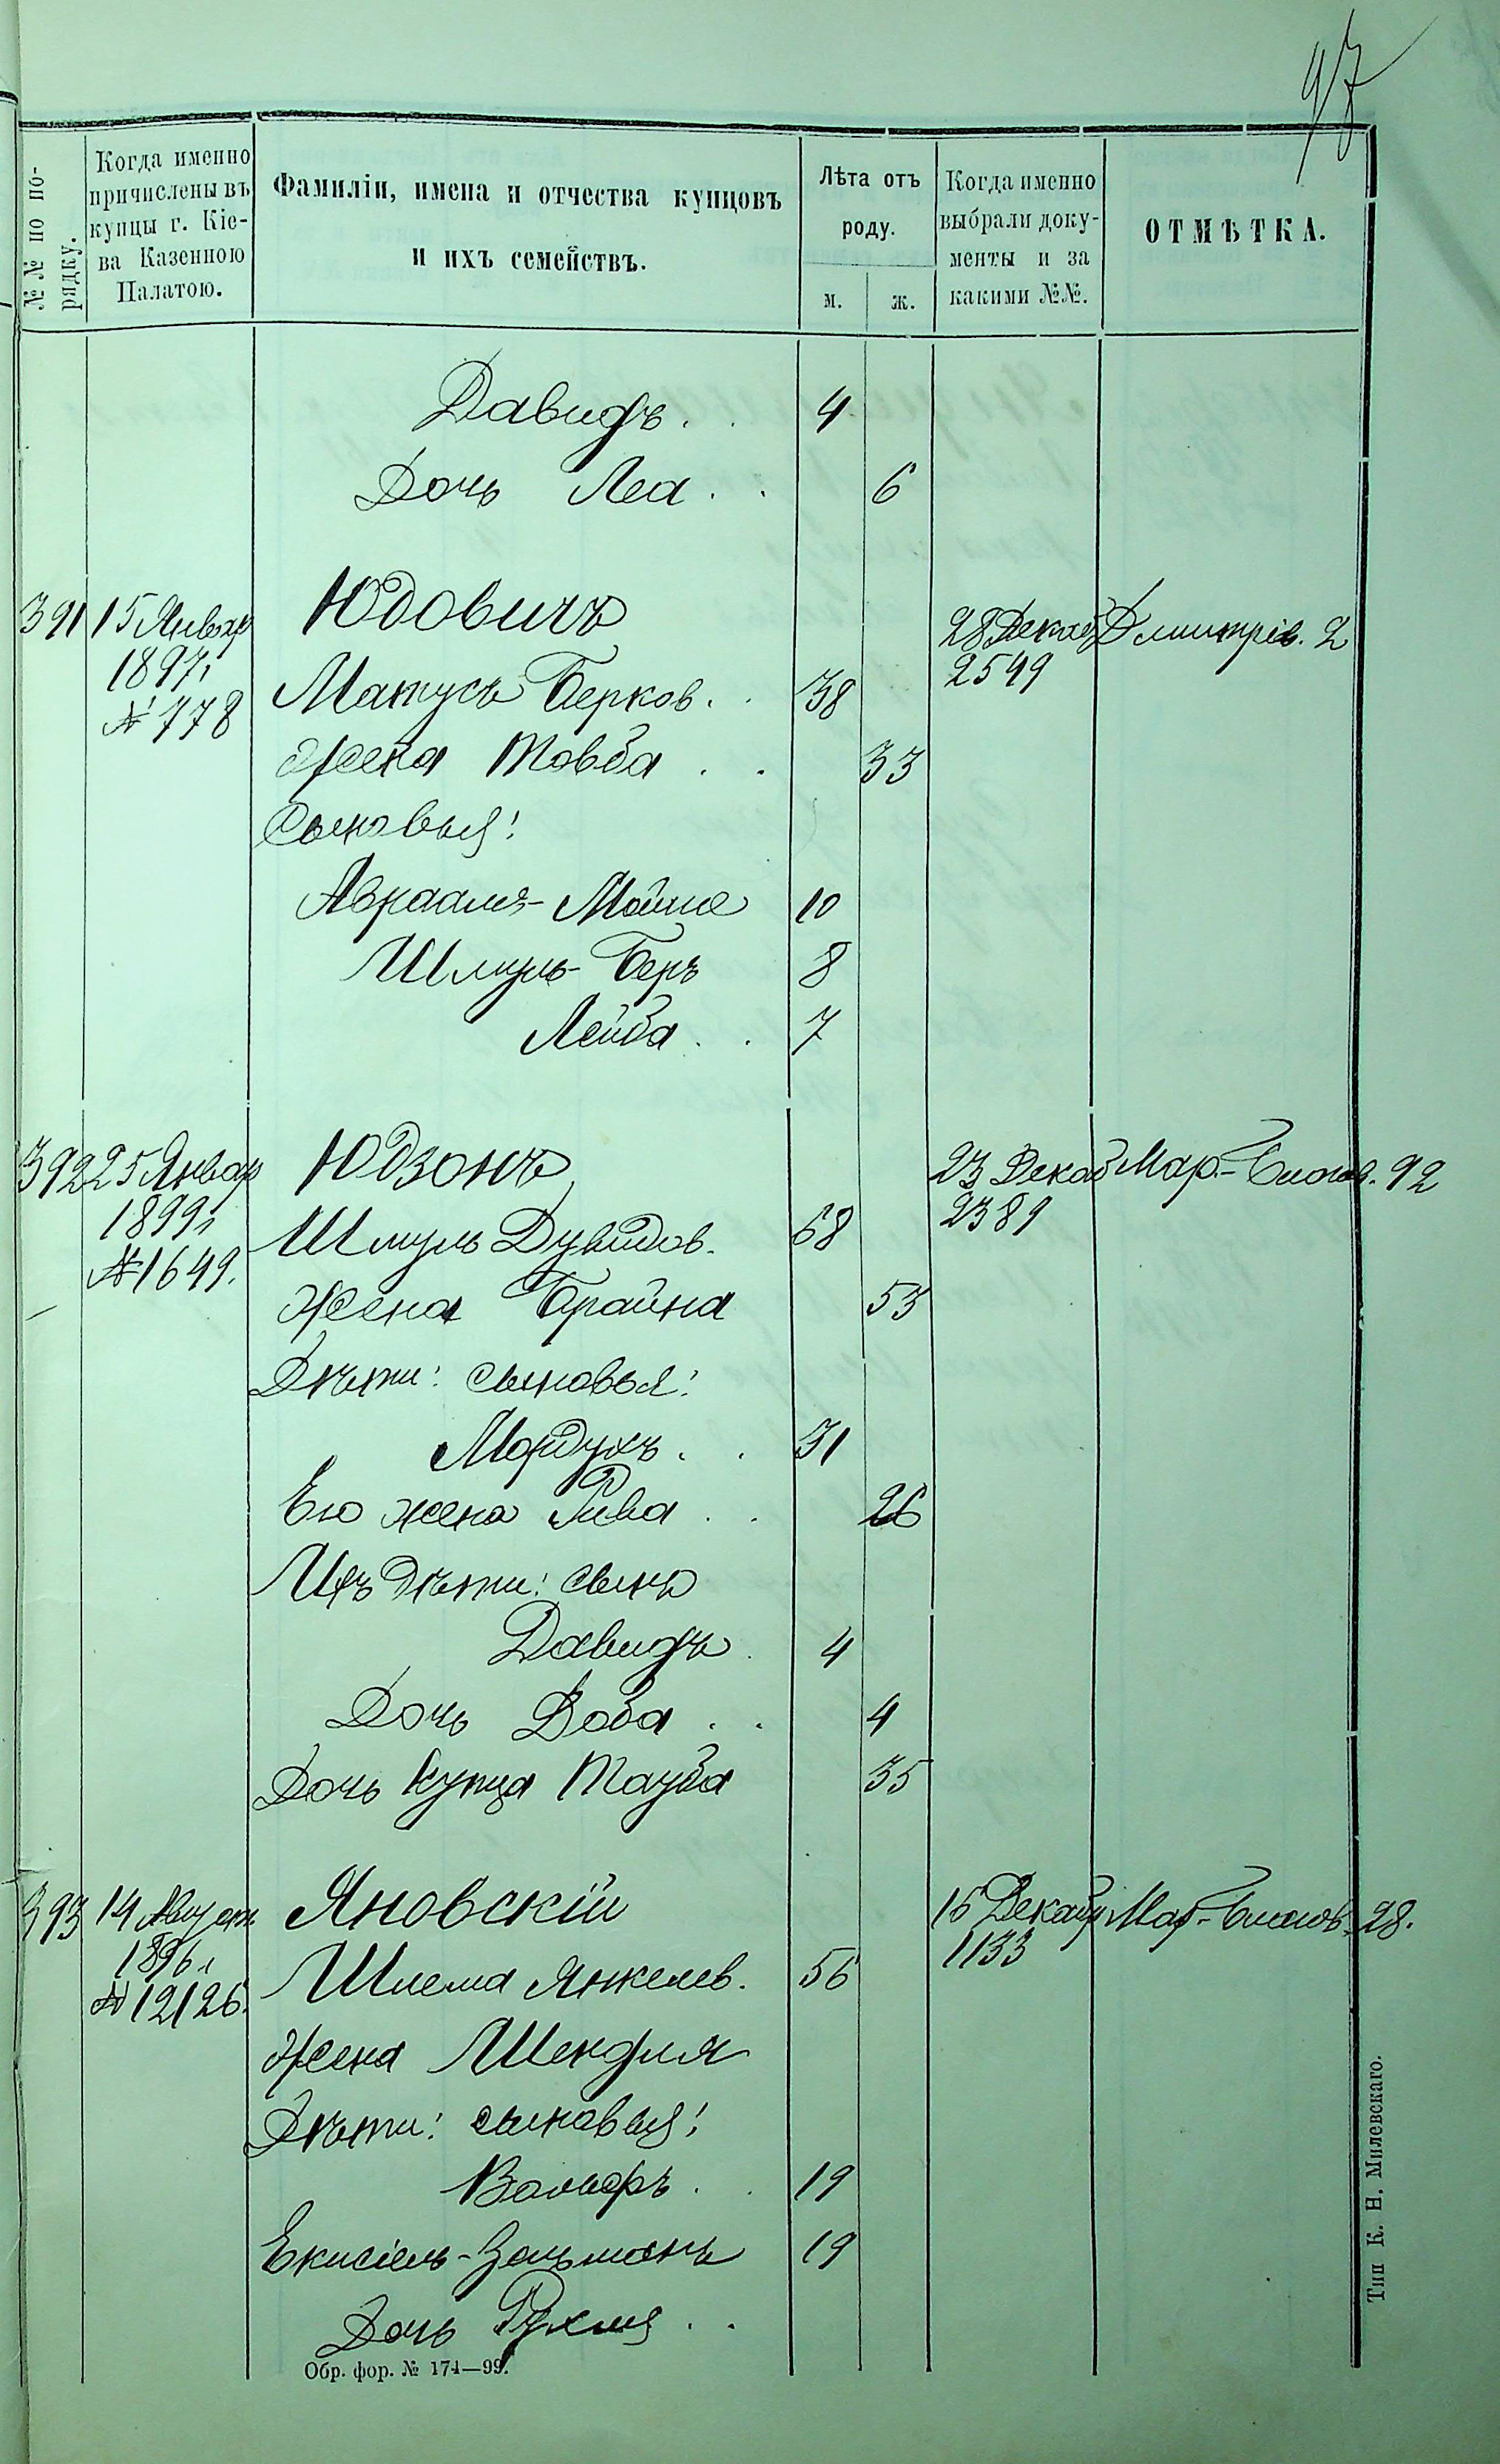 97
№№ по по-
рядку.
Когда именно
причислены въ
купцы г. Кіе-
ва Казенною
Палатою.
Фамиліи, имена и отчества купцовъ
и ихъ семействъ.
Лѣта отъ
роду.
м.
ж.
Когда именно
выбрали доку-
менты и за
какими №№.
ОТМѢТКА.
Давидъ . . 4
Дочь Леа . . 6
391 15 Январ Юдовичъ 28 Декаб Дмитрів. 2
1897 г 2549
№ 778 Матусъ Берков. . 38
Жена Товба . . 33
Сыновья:
Авраамъ-Мойше 10
Шмуль-Беръ 8
Лейба . . 7
392 25 Январ Юдзонъ 23 Декаб Мар.-Благов. 92
1899 г 2389
№ 1649. Шмуль Дувидов. 68
Жена Брайна 53
Дѣти: сыновья:
Мордухъ . . 31
Его жена Рива . . 26
Ихъ дѣти: сынъ
Давидъ . 4
Дочь Доба . . 4
Дочь купца Тауба 35
393 14 Август Яновскій 15 Декабр Мар.-Благов. 28.
1896 г 1133
№ 12126. Шлема Янкелев. 56
Жена Шендля
Дѣти: сыновья:
Вольфъ . . 19
Екисіель-Зальманъ 19
Дочь Рухля . .
Обр. фор. № 174—99.
Тип К. Н. Милевскаго.